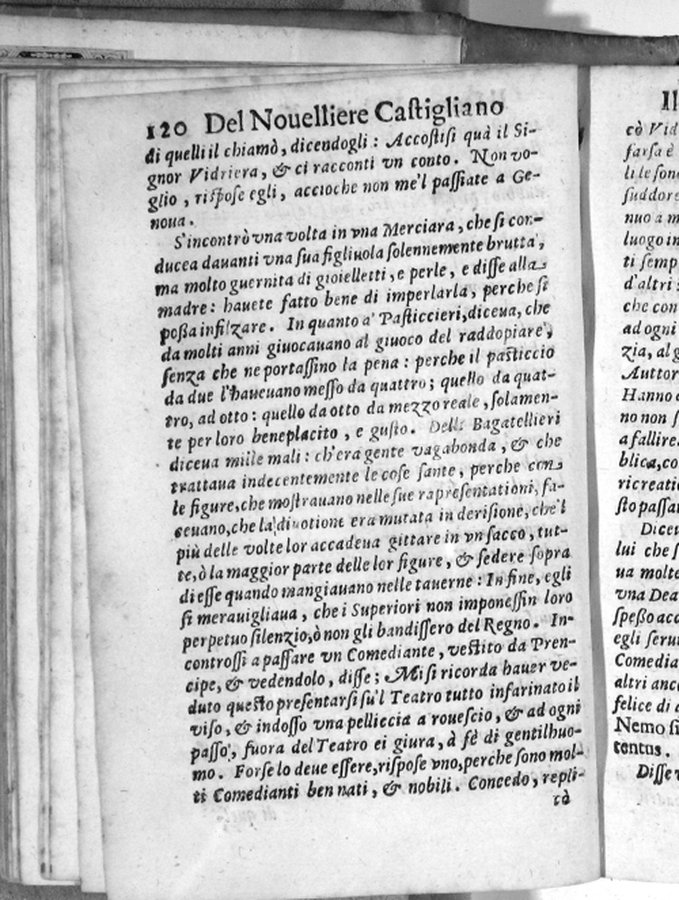 120 Del Nouelliere Castigliano
di quelli il chiamò, dicendogli: Accostisi quà il Si-
gnor Vidriera, & ci racconti vn conto. Non vo-
glio, rispose egli, accioche non me'l passiate a Ge-
noua.
S'incontrò vna volta in vna Merciara, che si con-
ducea dauanti vna sua figliuola solennemente brutta,
ma molto guernita di gioielletti, e perle, e disse alla
madre: hauete fatto bene di imperlarla, perche si
possa infilzare. In quanto a' Pasticcieri, diceua, che
da molti anni giuocauano al giuoco del raddopiare,
senza che ne portassino la pena: perche il pasticcio
da due l'haueuano messo da quattro; quello da quat-
tro, ad otto: quello da otto da mezzo reale, solamen-
te per loro beneplacito, e gusto. Delli Bagatellieri
diceua mille mali: ch'era gente vagabonda, & che
trattaua indecentemente le cose sante, perche con
le figure, che mostrauano nelle sue rapresentationi, fa-
ceuano, che la diuotione era mutata in derisione, che'l
più delle volte lor accadeua gittare in vn sacco, tut-
te, ò la maggior parte delle lor figure, & sedere sopra
di esse quando mangiauano nelle tauerne: In fine, egli
si merauigliaua, che i Superiori non imponessin loro
perpetuo silenzio, ò non gli bandissero del Regno. In-
controssi a passare vn Comediante, vestito da Pren-
cipe, & vedendolo, disse; Mi si ricorda hauer ve-
duto questo presentarsi su'l Teatro tutto infarinato il
viso, & indosso vna pelliccia a rouescio, & ad ogni
passo, fuora del Teatro ei giura, à fè di gentilhuo-
mo. Forse lo deue essere, rispose vno, perche sono mol-
ti Comedianti ben nati, & nobili. Concedo, repli-
cò
Il
cò Vid
farsa è
li le sono
suddore
nuo a m
luogo in
ti semp
d'altri:
che con
ad ogni
zia, al g
Auttor
Hanno
no non s
a fallire
blica, co
ricreatio
sto passa
Dice
lui che s
ua molte
vna Dea
spesso acc
egli seru
Comedia
altri anc
felice di
Nemo si
tentus.
Disse